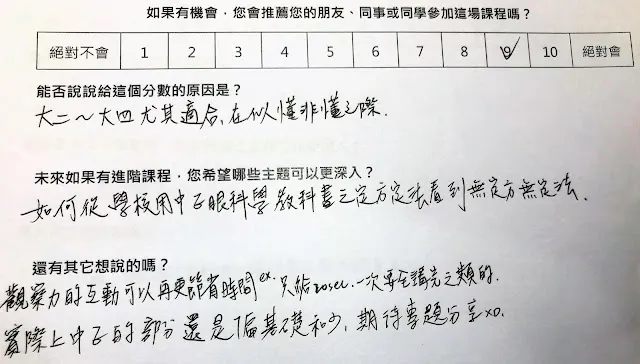 如果有機會，您會推薦您的朋友、同事或同學參加這場課程嗎？
絕對不會 1 2 3 4 5 6 7 8 9 10 絕對會
能否說說給這個分數的原因是？
大二～大四尤其適合,在似懂非懂之際.
未來如果有進階課程，您希望哪些主題可以更深入？
如何從學校用中正眼科學教科書之定方定法看到無定方無定法.
還有其它想說的嗎？
觀察力的互動可以再更節省時間 ex. 只給20sec. 一次要全講完之類的.
實際上中正的部分還是偏基礎和少, 期待專題分享xD.